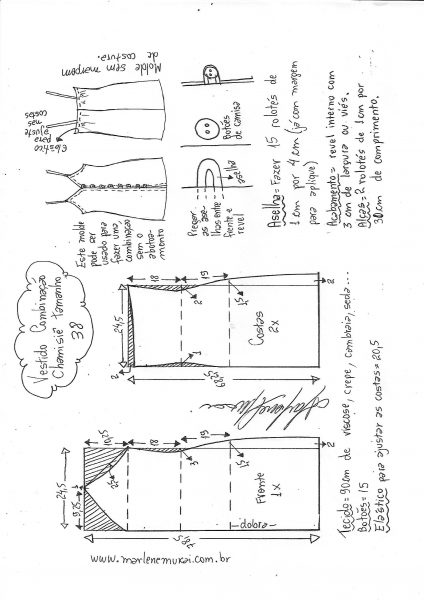 Vestido Combinação
Chamisiê Tamanho
38
Este molde
pode ser
usado para
fazer uma
combinação
sem
abotoa-
mento
Elástico
para
ajuste
nas
costas
Molde sem margem
de costura.
Pregar
as ase-
lhas entre
frente e
revel
aselha
Botões
de camisa
Aselha = Fazer 15 rolotês de
1 cm por 4 cm (já com margem
para aplique)
Acabamento = revel interno com
3 cm de largura ou viés.
Alças = 2 rolotês de 1 cm por
30 cm de comprimento.
24,5
2
18
19
2
1
1,5
2
Costas
2x
24,5
9,25
1
10,25
18
19
3
1,5
2
Frente
1x
-dobra-
Tecido = 90cm de viscose, crepe, cambraia, seda...
Botões = 15
Elástico para ajustar as costas = 20,5
www.marlenemukai.com.br